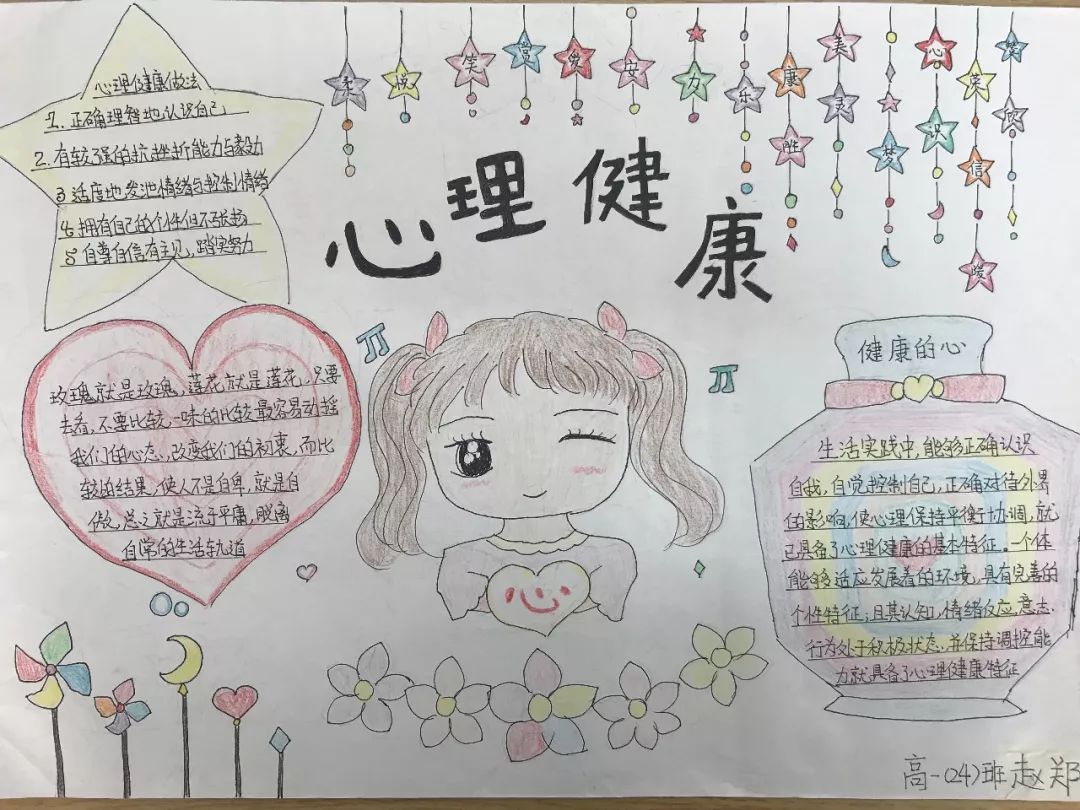 心理健康做法
1. 正确理智地认识自己
2. 有较强的抗挫折能力与毅力
3 适度地发泄情绪与控制情绪
4. 拥有自己的个性但不张扬
5 自尊自信有主见,踏实努力
柔
悦
笑
赏
爱
安
力
乐
康
胜
美
灵
梦
心
识
英
信
暖
笑
欣
心理健康
玫瑰就是玫瑰,莲花就是莲花,只要
去看,不要比较,一味的比较最容易动摇
我们的心态,改变我们的初衷,而比
较的结果,使人不是自卑,就是自
傲,总之就是流于平庸,脱离
自常的生活轨道
心
健康的心
生活实践中,能够正确认识
自我,自觉控制自己,正确对待外界
的影响,使心理保持平衡协调,就
已具备了心理健康的基本特征。一个体
能够适应发展着的环境,具有完善的
个性特征;且其认知,情绪反应,意志.
行为处于积极状态,并保持调控能
力就具备了心理健康特征
高一(24)班赵郑